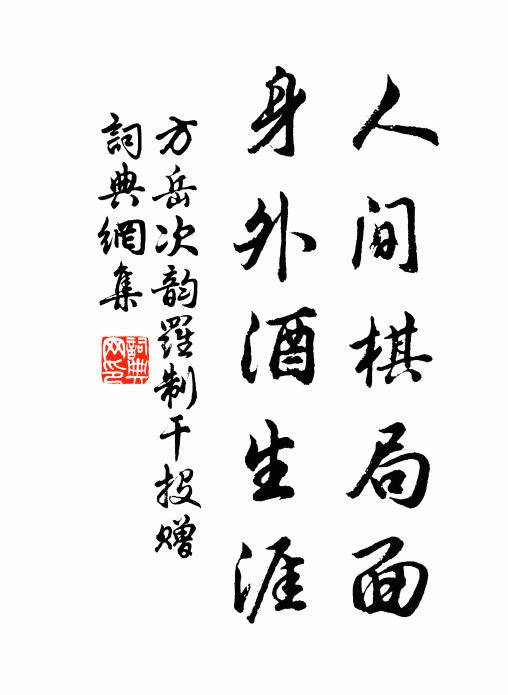 人间棋局面
身外酒生涯
方岳次韵羅制干投赠
詞典網集
詞典网印